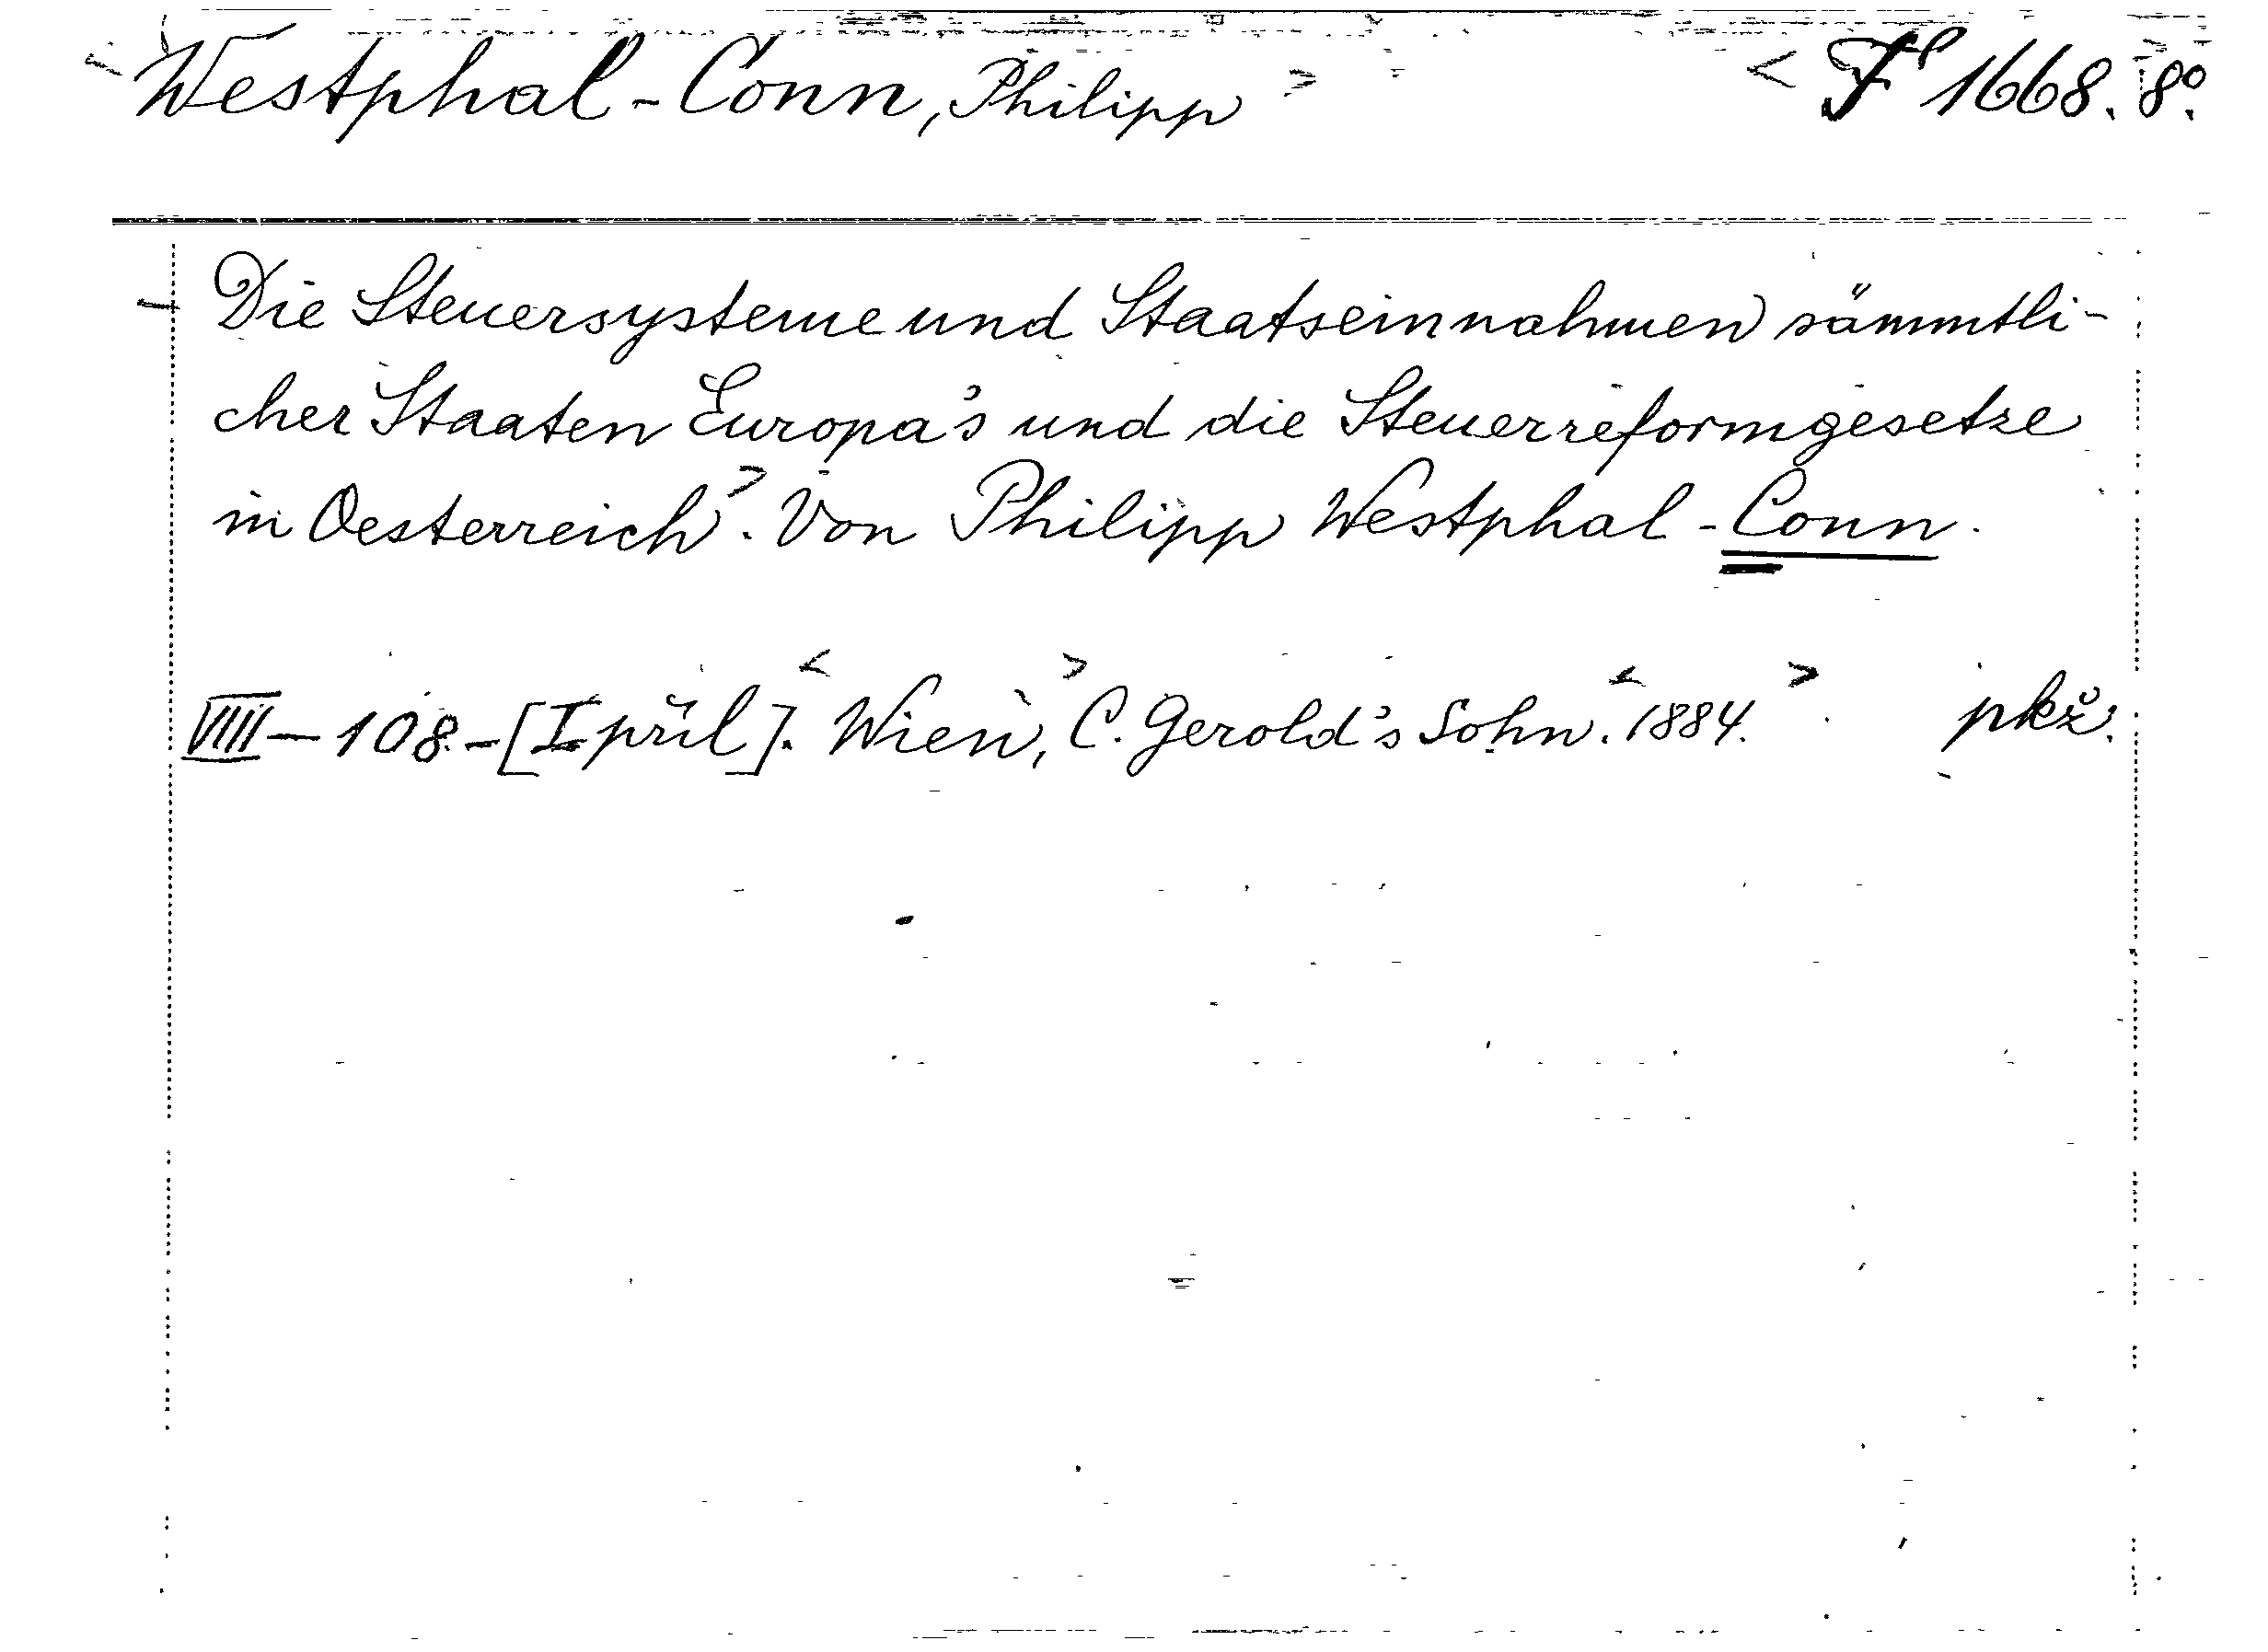 Westphal-Conn, Philipp
1668. 8º.
Die Steuersysteme und Staatseinnahmen sämmtli-
cher Staaten Europa's und die Steuerreformgesetze
in Oesterreich. Von Philipp Westphal-Conn.
VIII — 108 - [I příl]. Wien, C. Gerold's Sohn. 1884. pkž.